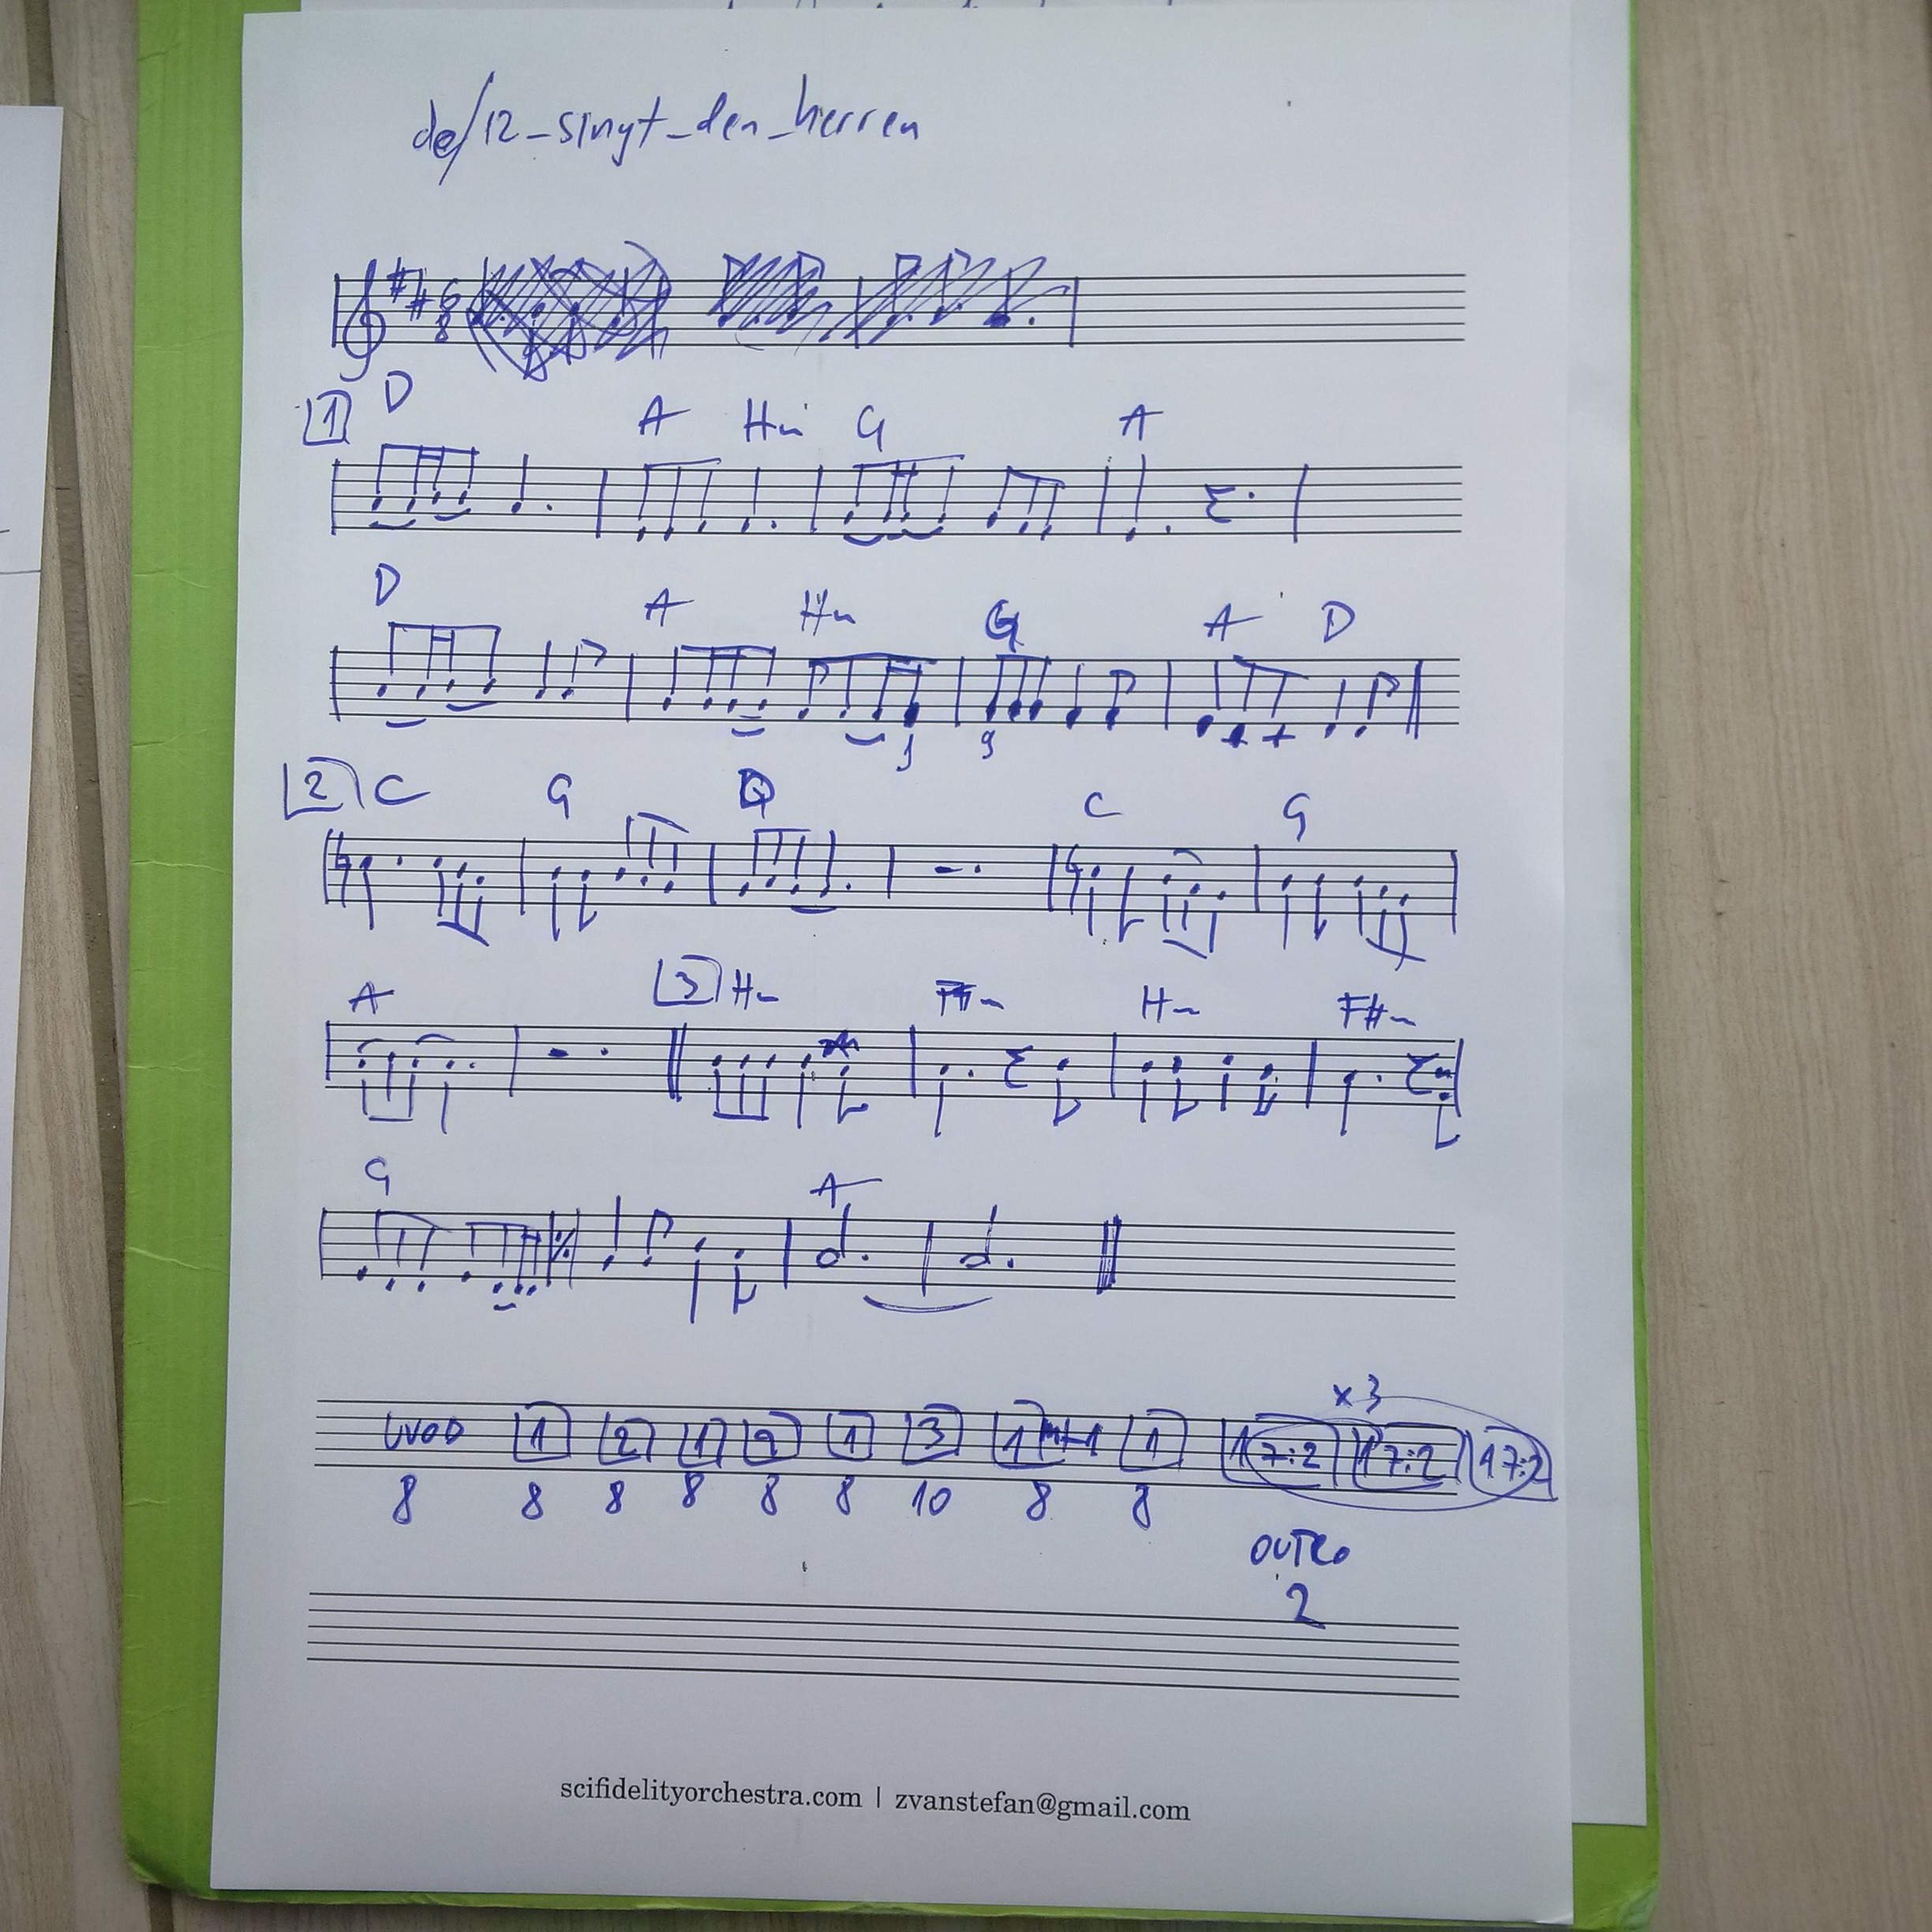 de/12_singt_den_herren
6
8
1 D A Hm G A
D A Hm G A D
2 C G D C G
A 3 Hm F#m Hm F#m
G A
x3
UVOD 1 2 1 2 1 3 1 1 1 7:2 1 7:2 1 7:2
8 8 8 8 8 8 10 8 8
OUTRO
2
scifidelityorchestra.com | zvanstefan@gmail.com